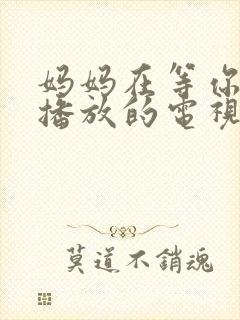 妈妈在等你
播放的電視
莫道不銷魂